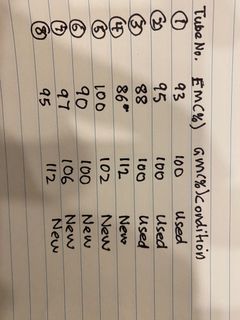 Tube No. EM(%) GM(%) Condition
① 93 100 Used
② 95 100 Used
③ 88 100 Used
④ 86* 112 New
⑤ 100 102 New
⑥ 90 100 New
⑦ 97 106 New
⑧ 95 112 New